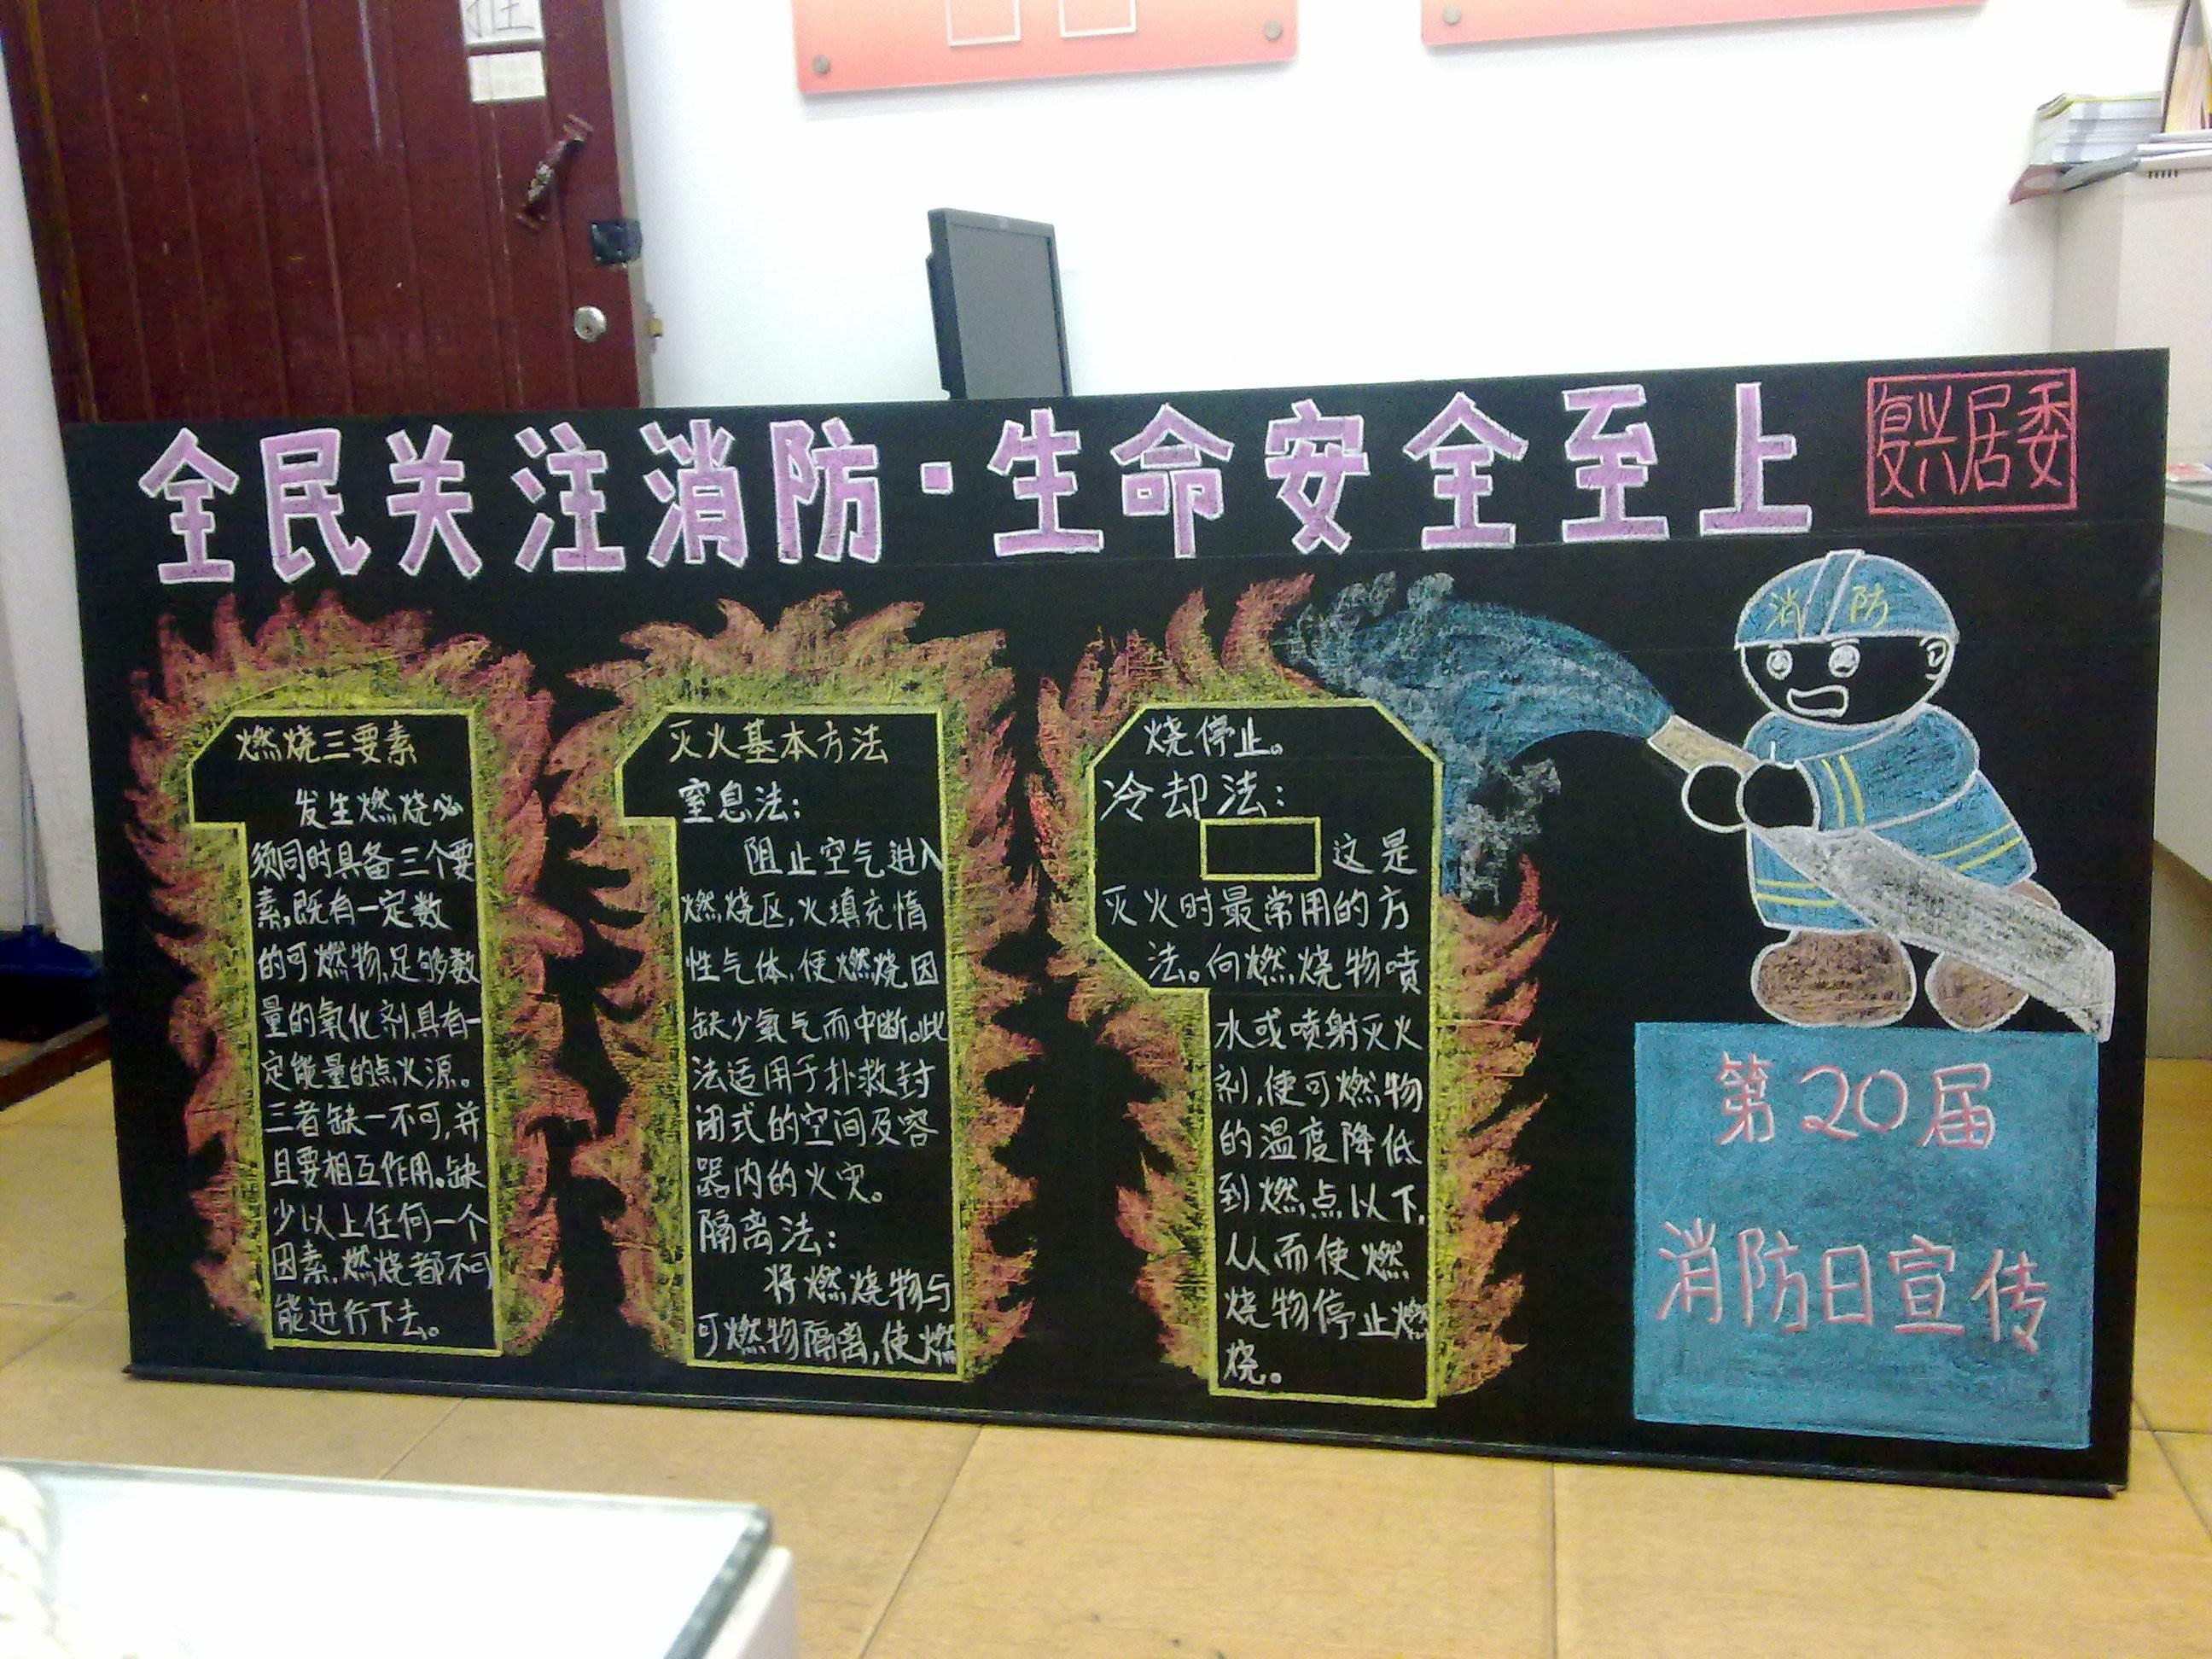 全民关注消防·生命安全至上
复兴居委
消防
燃烧三要素
发生燃烧必
须同时具备三个要
素,既有一定数
的可燃物,足够数
量的氧化剂,具有一
定能量的点火源。
三者缺一不可,并
且要相互作用。缺
少以上任何一个
因素,燃烧都不可
能进行下去。
灭火基本方法
窒息法:
阻止空气进入
燃烧区,火填充惰
性气体,使燃烧因
缺少氧气而中断。此
法适用于扑救封
闭式的空间及容
器内的火灾。
隔离法:
将燃烧物与
可燃物隔离,使燃
烧停止。
冷却法:
这是
灭火时最常用的方
法。向燃烧物喷
水或喷射灭火
剂,使可燃物
的温度降低
到燃点以下,
从而使燃
烧物停止燃
烧。
第20届
消防日宣传